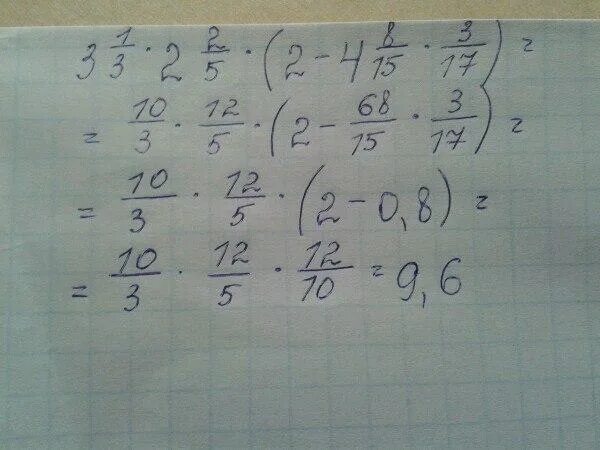 3 1/3 · 2 2/5 · (2 - 4 8/15 · 3/17) =
= 10/3 · 12/5 · (2 - 68/15 · 3/17) =
= 10/3 · 12/5 · (2 - 0,8) =
= 10/3 · 12/5 · 12/10 = 9,6